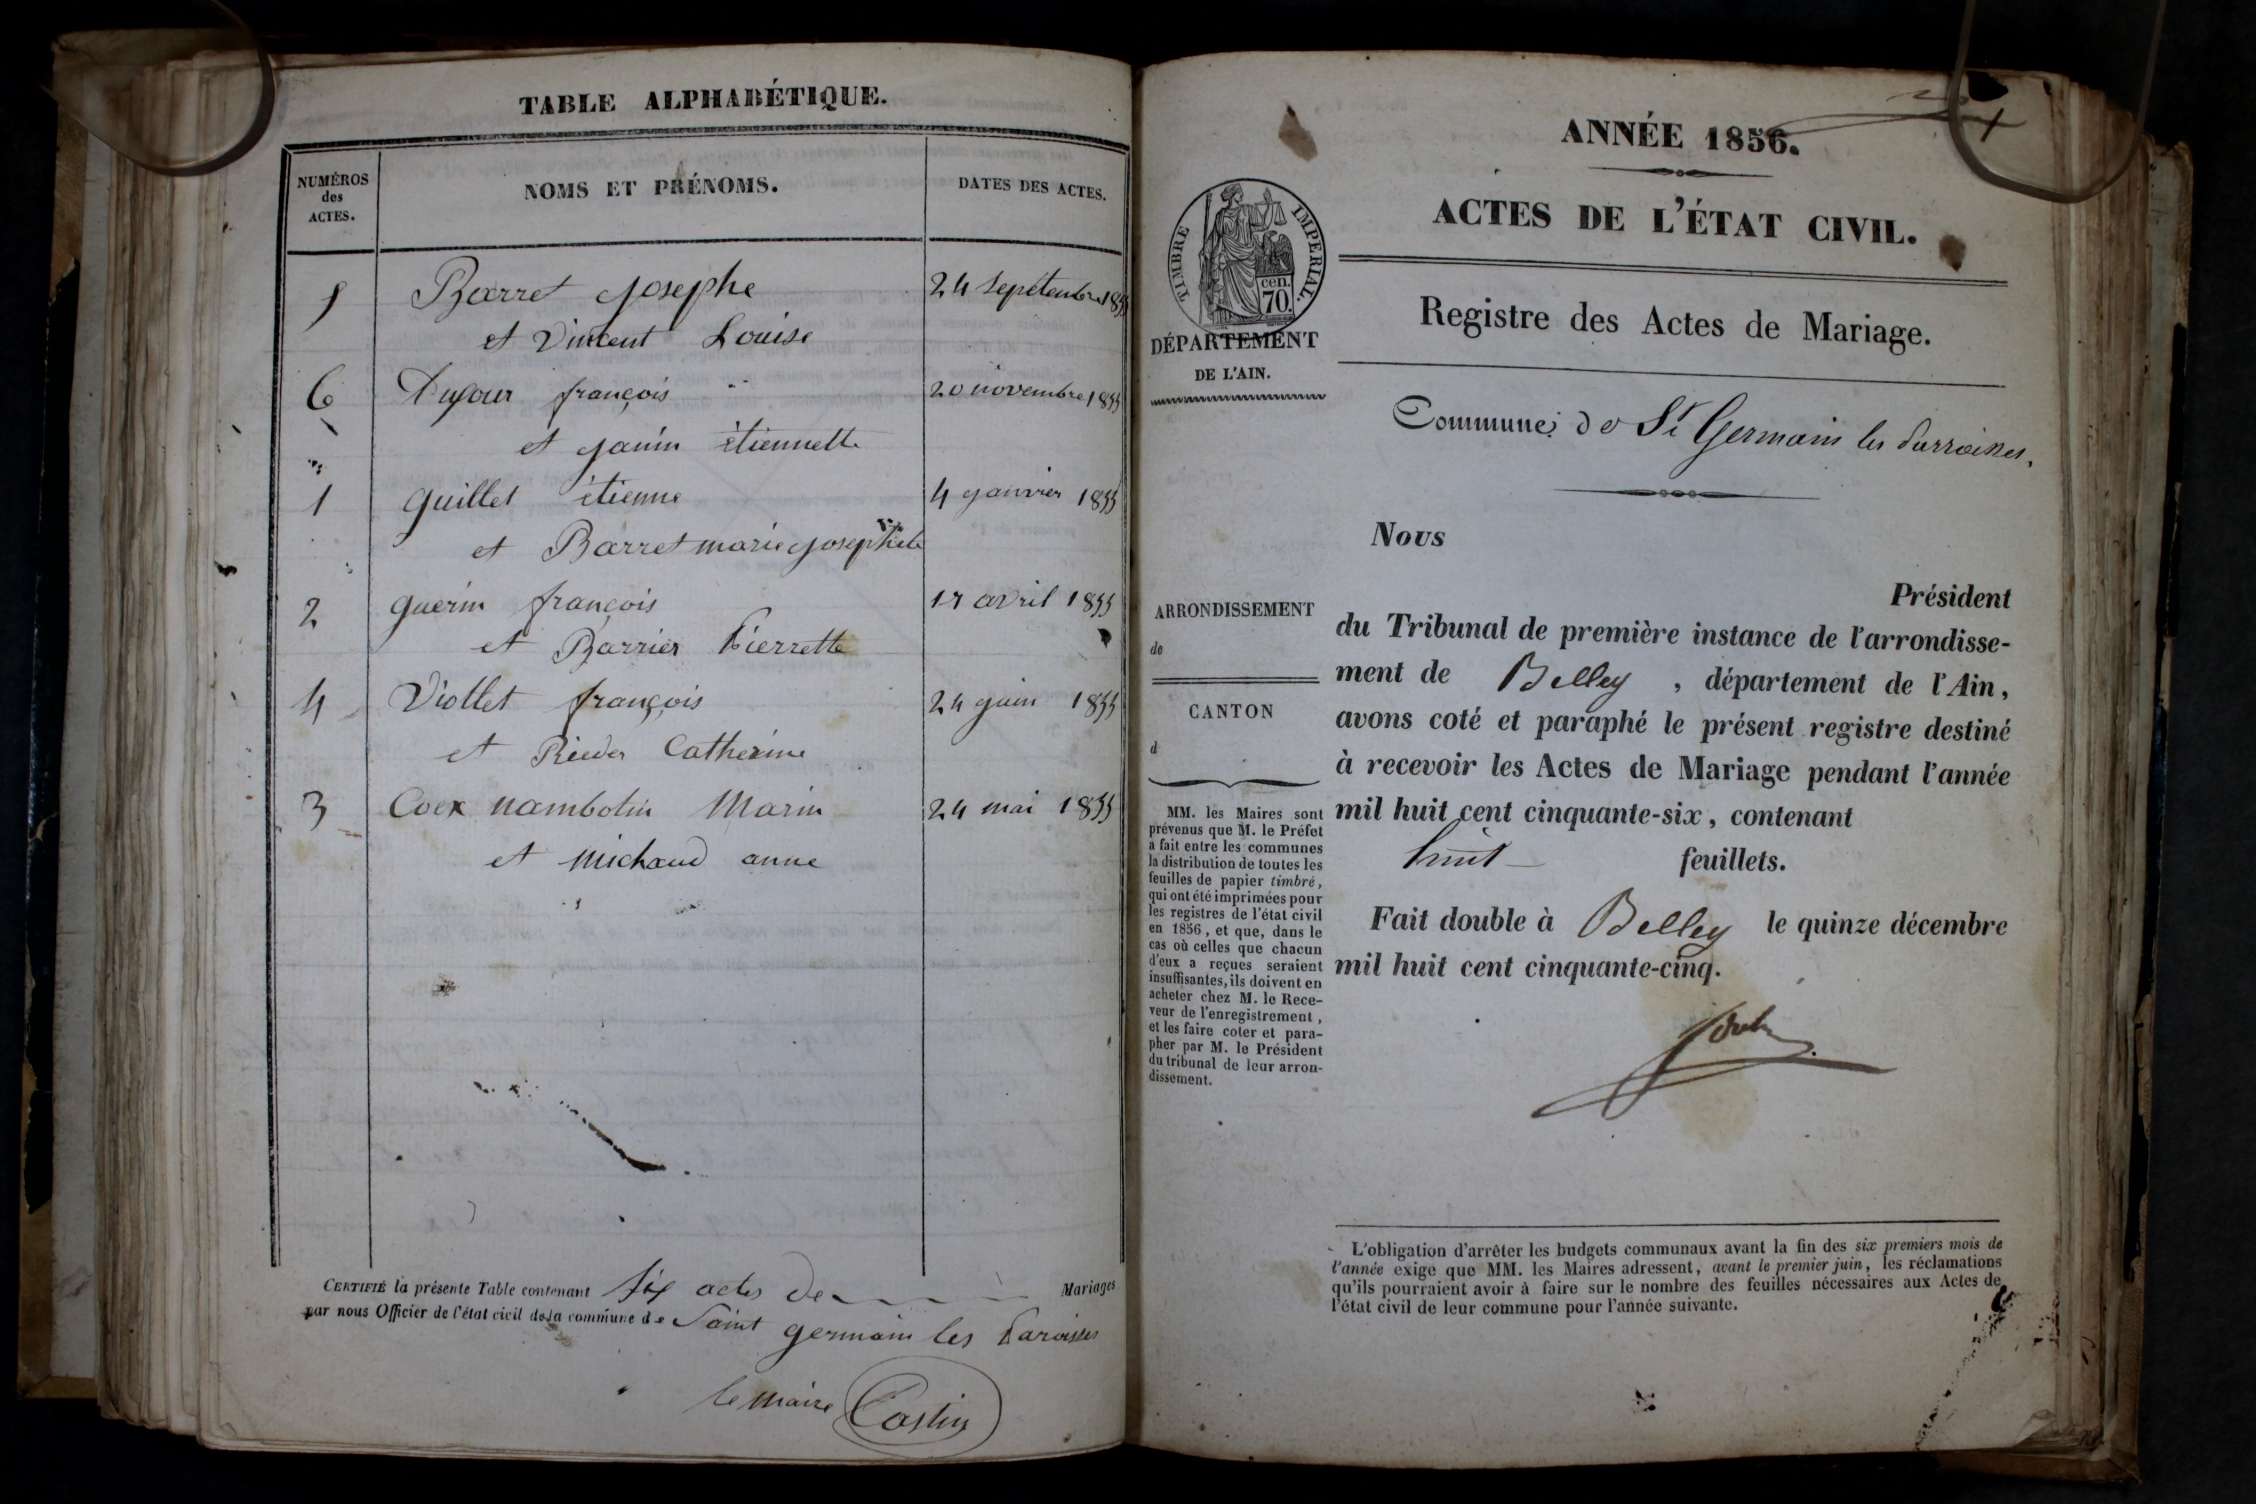 TABLE ALPHABÉTIQUE.
NUMÉROS
des
ACTES.
NOMS ET PRÉNOMS.
DATES DES ACTES.
5 Barret josephe 24 septembre 1855
et Vincent Louise
6 Dufour françois 20 novembre 1855
et janin étiennette
1 guillet étienne 4 janvier 1855
et Barret marie josephete
2 guerin françois 17 avril 1855
et Barrier Pierrette
4 Viollet françois 24 juin 1855
et Rieder Catherine
3 Coex nambotin Marin 24 mai 1855
et michaud anne
CERTIFIÉ la présente Table contenant six actes de Mariages
par nous Officier de l'état civil de la commune de Saint germain les Paroisses
le maire Castin
ANNÉE 1856.
ACTES DE L'ÉTAT CIVIL.
TIMBRE IMPERIAL.
cen.
70.
DÉPARTEMENT
DE L'AIN.
Registre des Actes de Mariage.
Commune de St Germain les Parroisses.
Nous
Président
du Tribunal de première instance de l'arrondisse-
ment de Belley , département de l'Ain,
avons coté et paraphé le présent registre destiné
à recevoir les Actes de Mariage pendant l'année
mil huit cent cinquante-six, contenant
huit feuillets.
Fait double à Belley le quinze décembre
mil huit cent cinquante-cinq.
ARRONDISSEMENT
de
CANTON
d
MM. les Maires sont
prévenus que M. le Préfet
a fait entre les communes
la distribution de toutes les
feuilles de papier timbré,
qui ont été imprimées pour
les registres de l'état civil
en 1856, et que, dans le
cas où celles que chacun
d'eux a reçues seraient
insuffisantes, ils doivent en
acheter chez M. le Rece-
veur de l'enregistrement,
et les faire coter et para-
pher par M. le Président
du tribunal de leur arron-
dissement.
L'obligation d'arrêter les budgets communaux avant la fin des six premiers mois de
l'année exige que MM. les Maires adressent, avant le premier juin, les réclamations
qu'ils pourraient avoir à faire sur le nombre des feuilles nécessaires aux Actes de
l'état civil de leur commune pour l'année suivante.